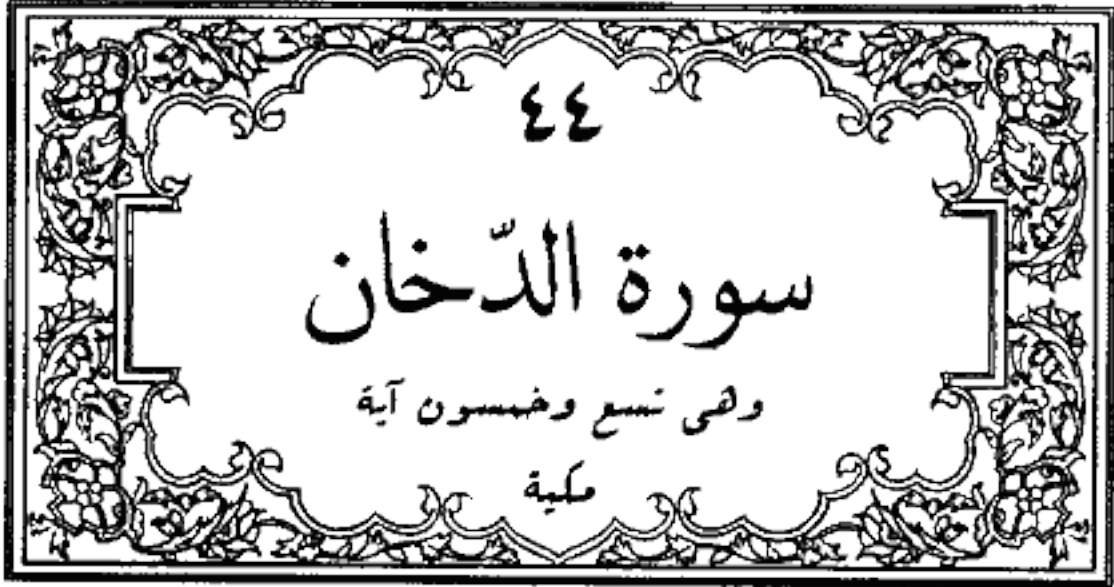 ٤٤
سورة الدّخان
وهى تسع وخمسون آية
مكية